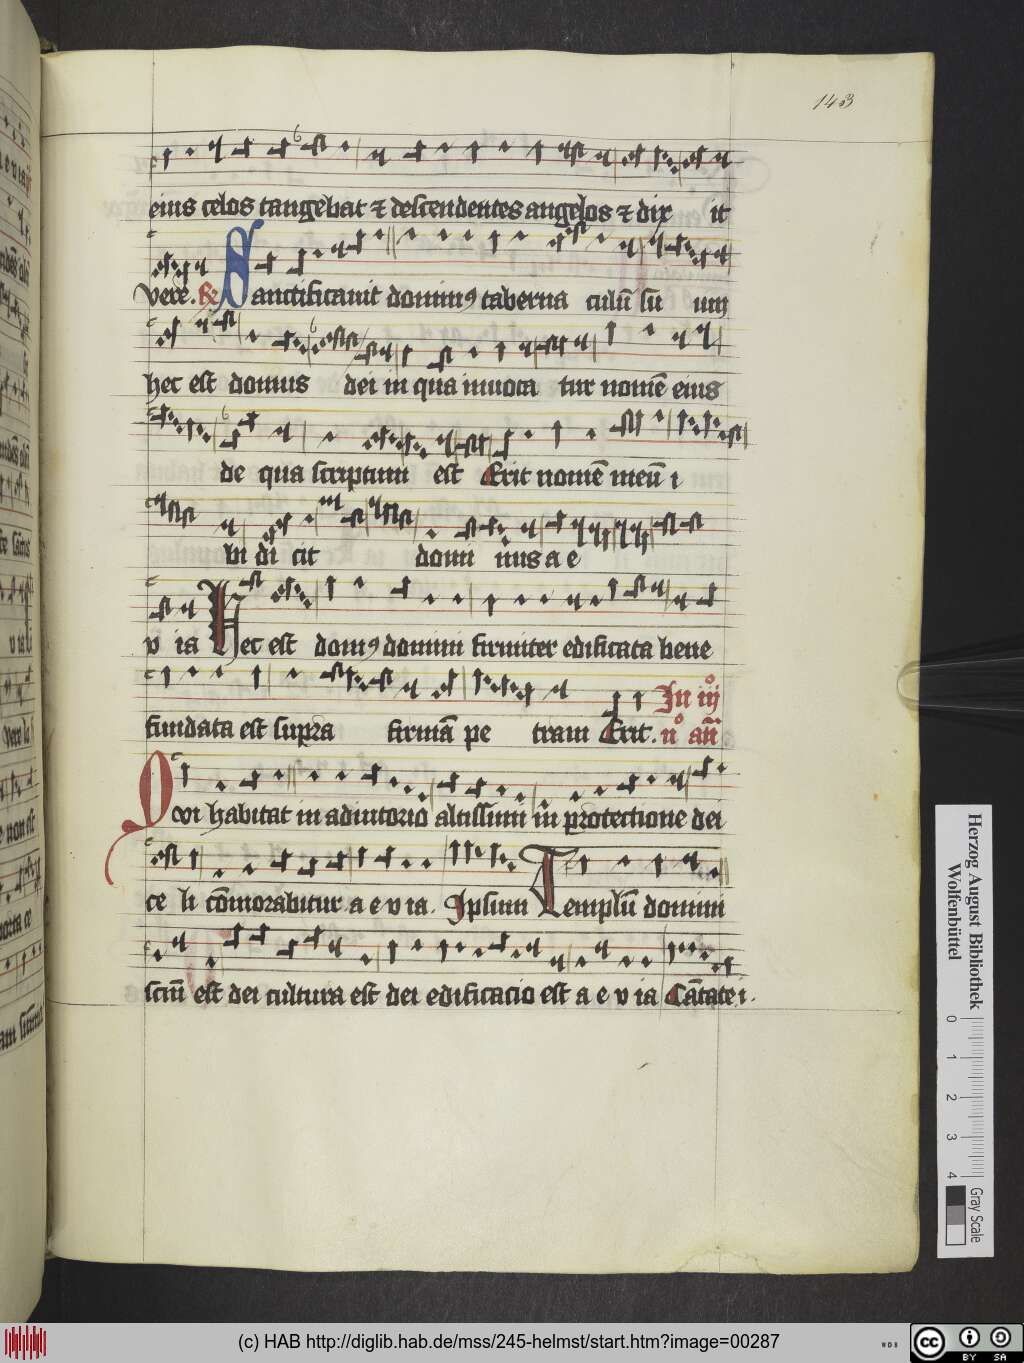 143
eius celos tangebat ⁊ descendentes angelos ⁊ dix it
vere. R Sanctificavit dominꝰ taberna culū su um
hec est domus dei in qua invoca tur nomē eius
de qua scriptum est Erit nomē meū i
bi di cit domi nus a e
v ia Hec est domꝰ domini firmiter edificata bene
fundata est supra firmā pe tram Erit. In iijo
no añ
Qvi habitat in adiutorio altissimi in protectione dei
ce li cōmorabitur a e v ia. Ipsum Templū domini
scm̄ est dei cultura est dei edificacio est a e v ia Cātate i.
Herzog August Bibliothek
Wolfenbüttel
0 1 2 3 4
Gray Scale
(c) HAB http://diglib.hab.de/mss/245-helmst/start.htm?image=00287
WDB
cc BY SA